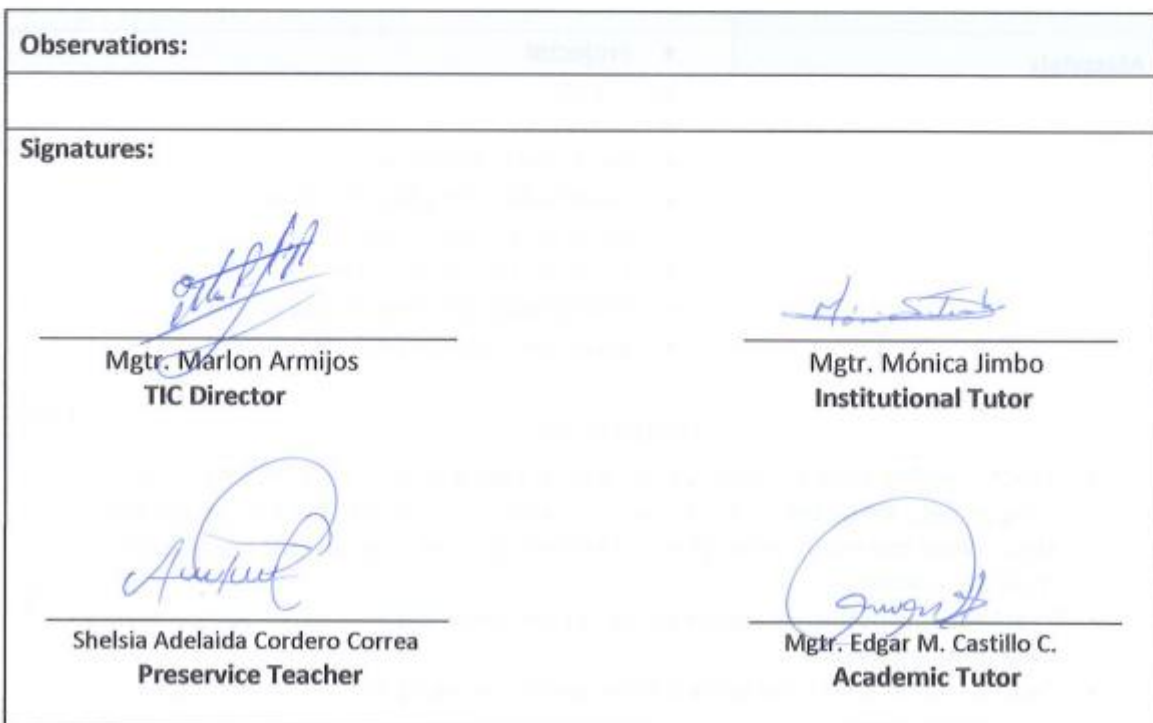 Observations:
Signatures:
Mgtr. Marlon Armijos
TIC Director
Mgtr. Mónica Jimbo
Institutional Tutor
Shelsia Adelaida Cordero Correa
Preservice Teacher
Mgtr. Edgar M. Castillo C.
Academic Tutor